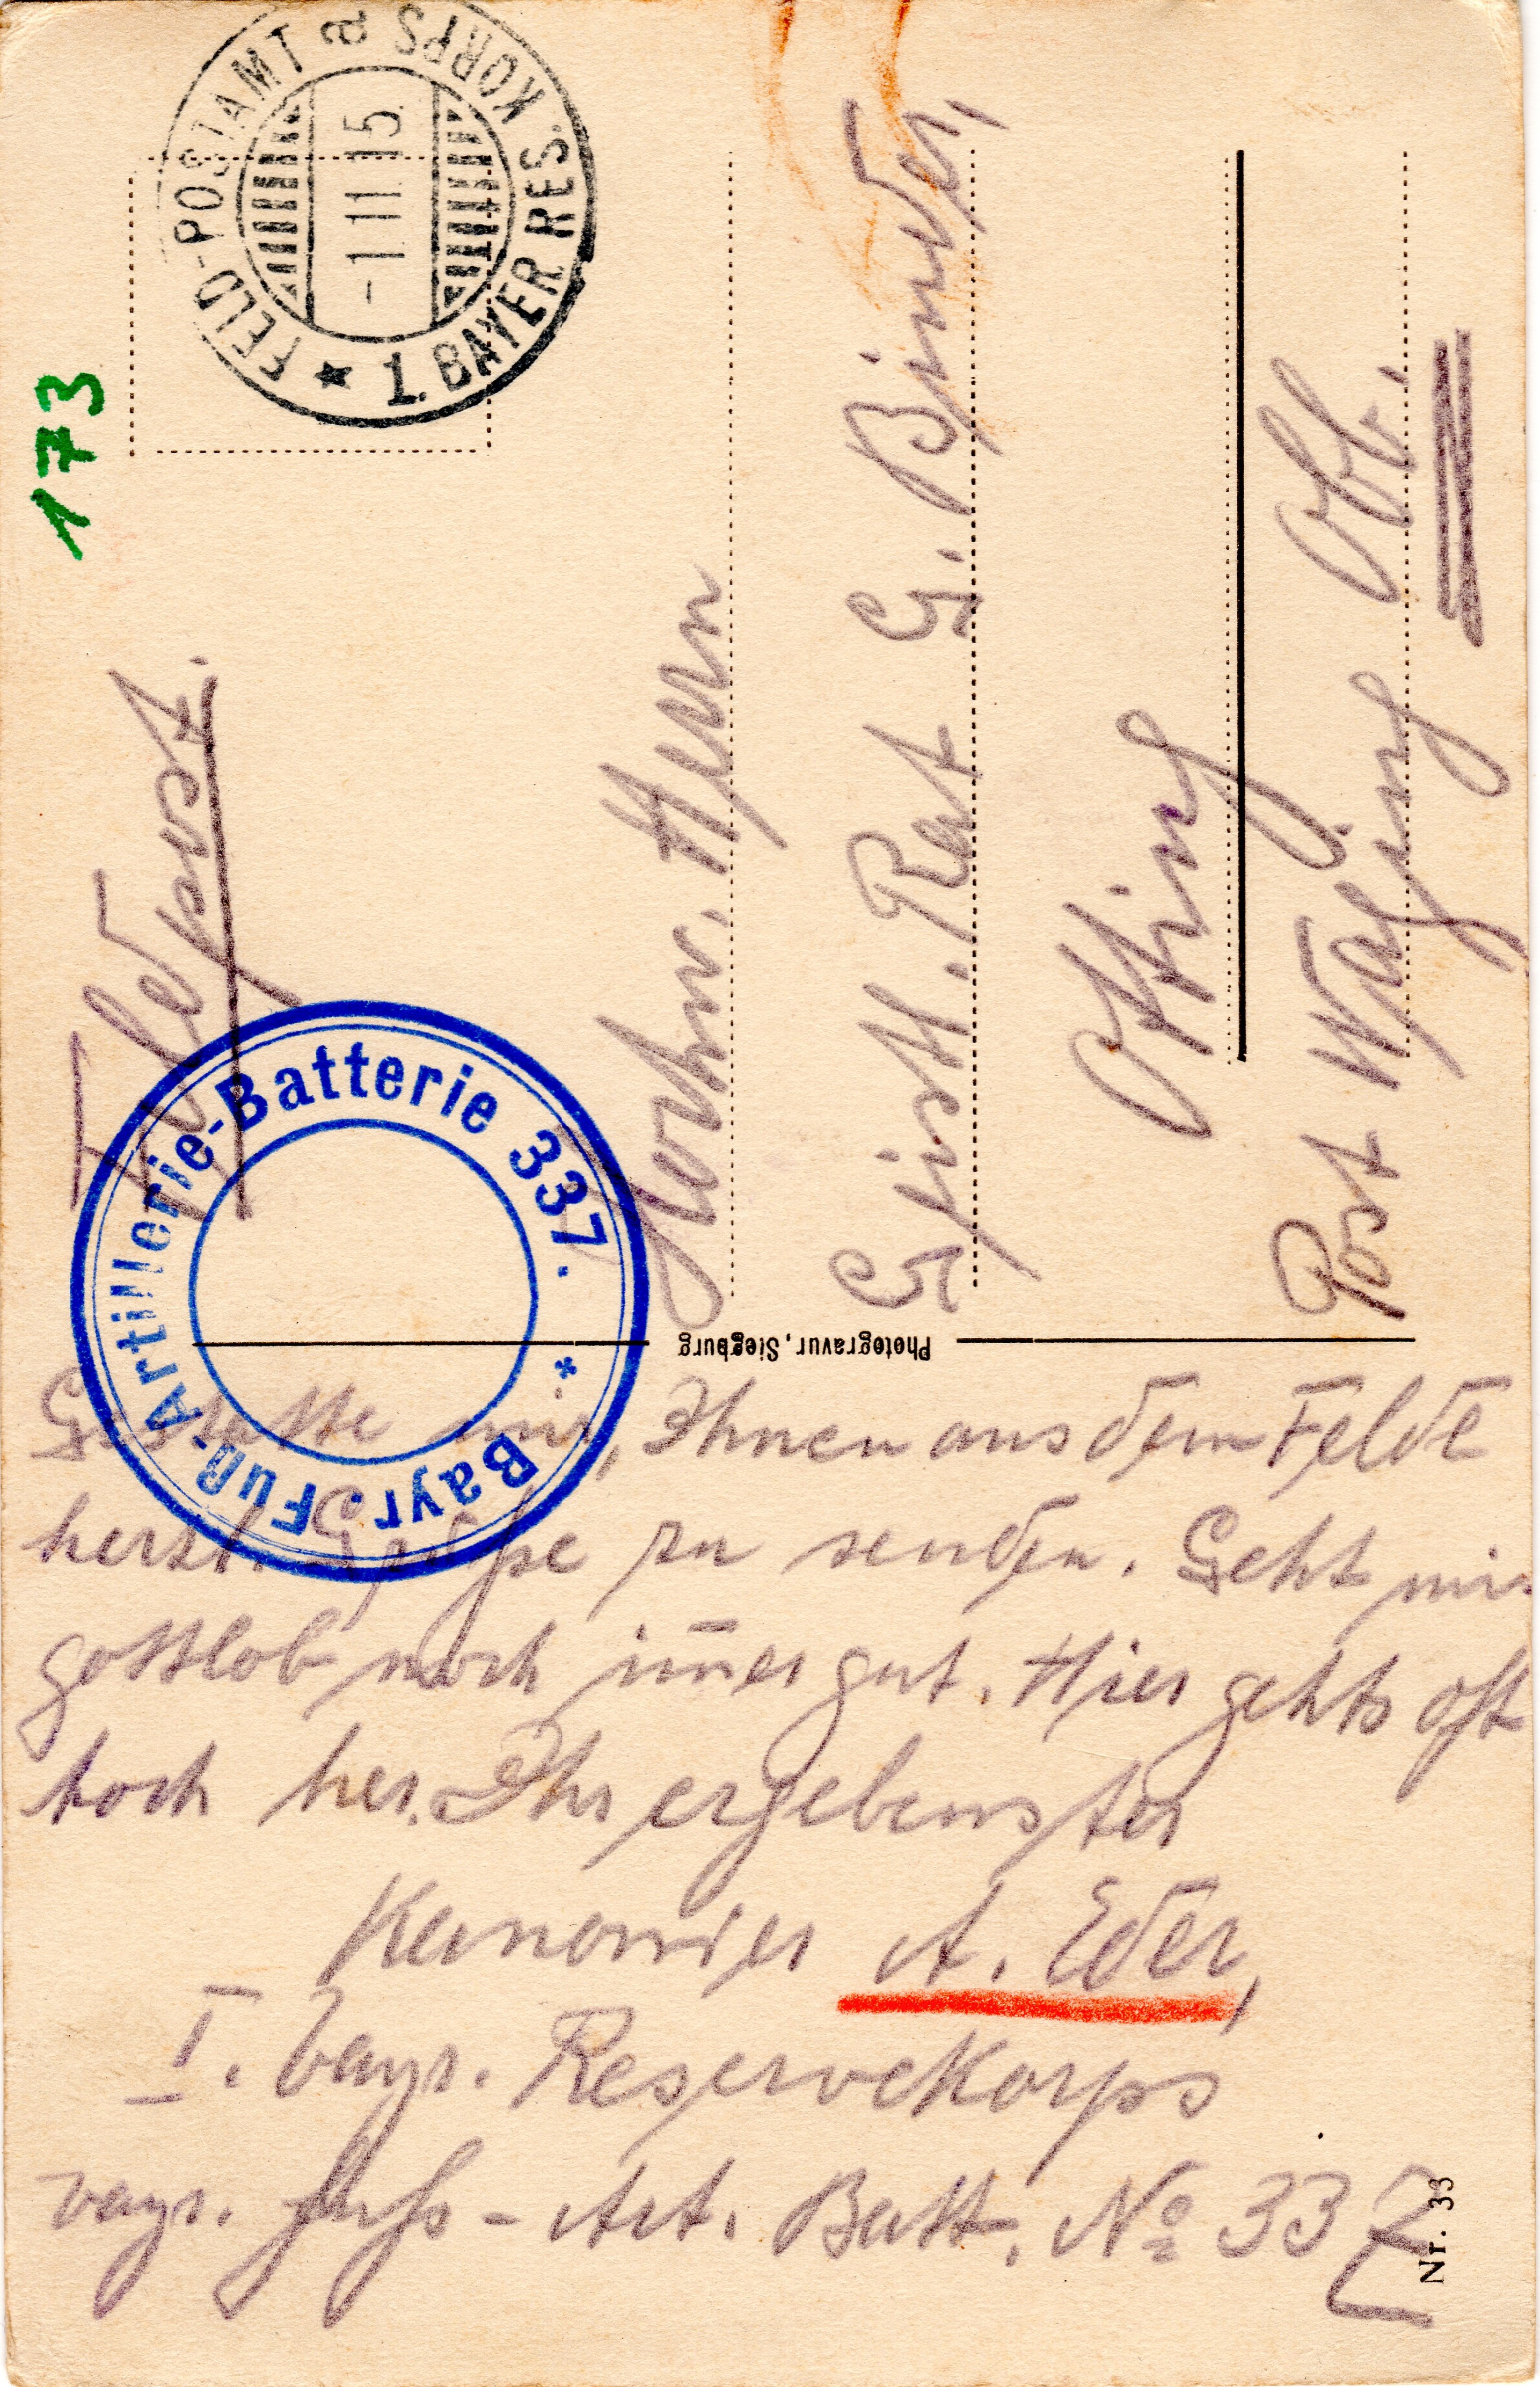 173
FELD-POSTAMT a KORPS
* 1. BAYER RES.
-1.11.15
Feldpost.
Bayr. Fuß-Artillerie-Batterie 337. *
Hochw. Herrn
Geistl. Rat G. Binder,
Otting
Post Waging Obb.
Photogravur, Siegburg
Gestatte mir, Ihnen aus dem Felde
herzl. Grüße zu senden. Geht mir
gottlob noch im̄er gut. Hier gehts oft
hoch her. Ihr ergebenster
Kanonier A. Eder,
I. bayr. Reservekorps
bayr. Fuß-Art. Batt. No 337
Nr. 33